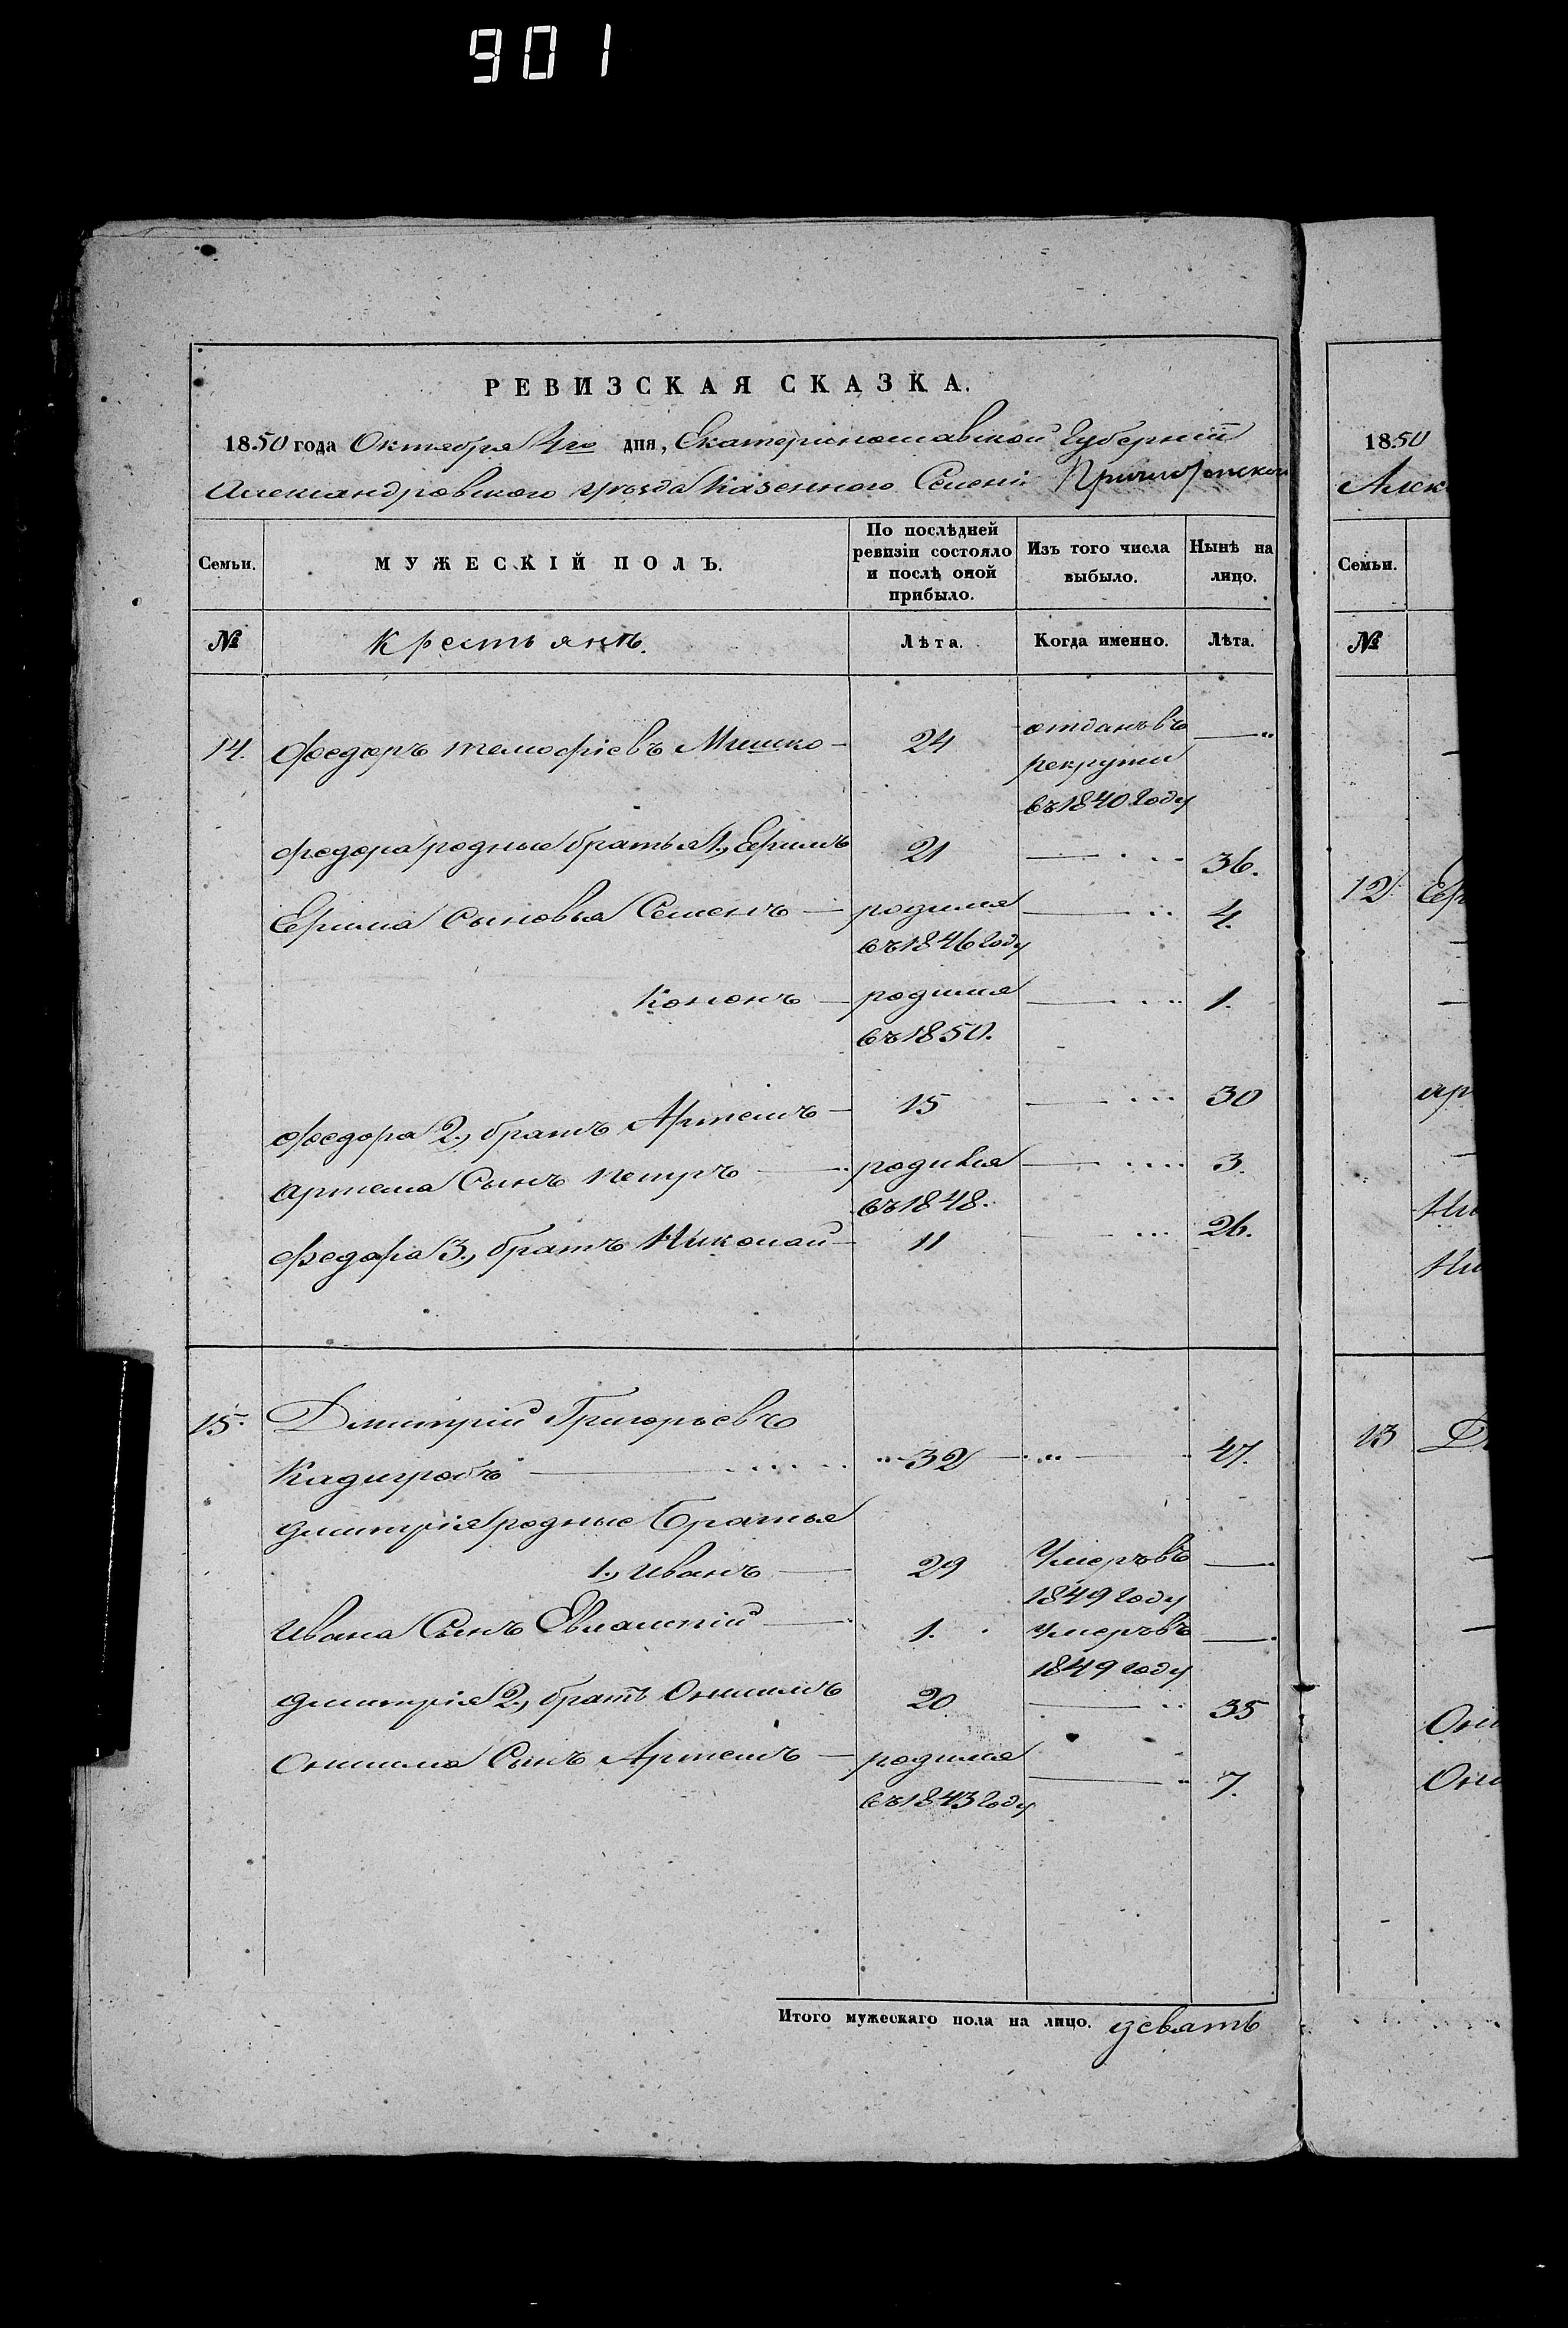 901
РЕВИЗСКАЯ СКАЗКА.
1850 года Октября 4го дня, Екатеринославской Губерніи
Александровского уезда Казенного Селенія
Семьи. МУЖЕСКІЙ ПОЛЪ. По послѣдней ревизіи состояло и послѣ оной прибыло. Изъ того числа выбыло. Нынѣ на лицо.
№ Крестьянъ. Лѣта. Когда именно. Лѣта.
14. Федоръ Тимофіевъ Мишко 24 отданъ въ
рекруты
въ 1840 году
Федора родные братья 1., Ефимъ 21 36.
Ефима Сыновья Семенъ родился 4.
въ 1846 году
Кононъ родился 1.
въ 1850.
Федора 2., братъ Артемъ 15 30
Артема Сынъ Петръ родился 3.
въ 1848.
Федора 3., братъ Николай 11 26.
15. Дмитрій Григорьевъ
Кадигробъ 32 47.
Дмитрія родные братья
1., Иванъ 29 Умеръ въ
1849 году
Ивана Сынъ Евлампій 1. Умеръ въ
1849 году
Дмитрія 2., братъ Онисимъ 20 35
Онисима Сынъ Артемъ родился
въ 1843 году 7.
Итого мужескаго пола на лицо. девять
1850
Алек
Семьи.
№
12 Еф
Ар
Ни
Ни
13 Д
Они
Они